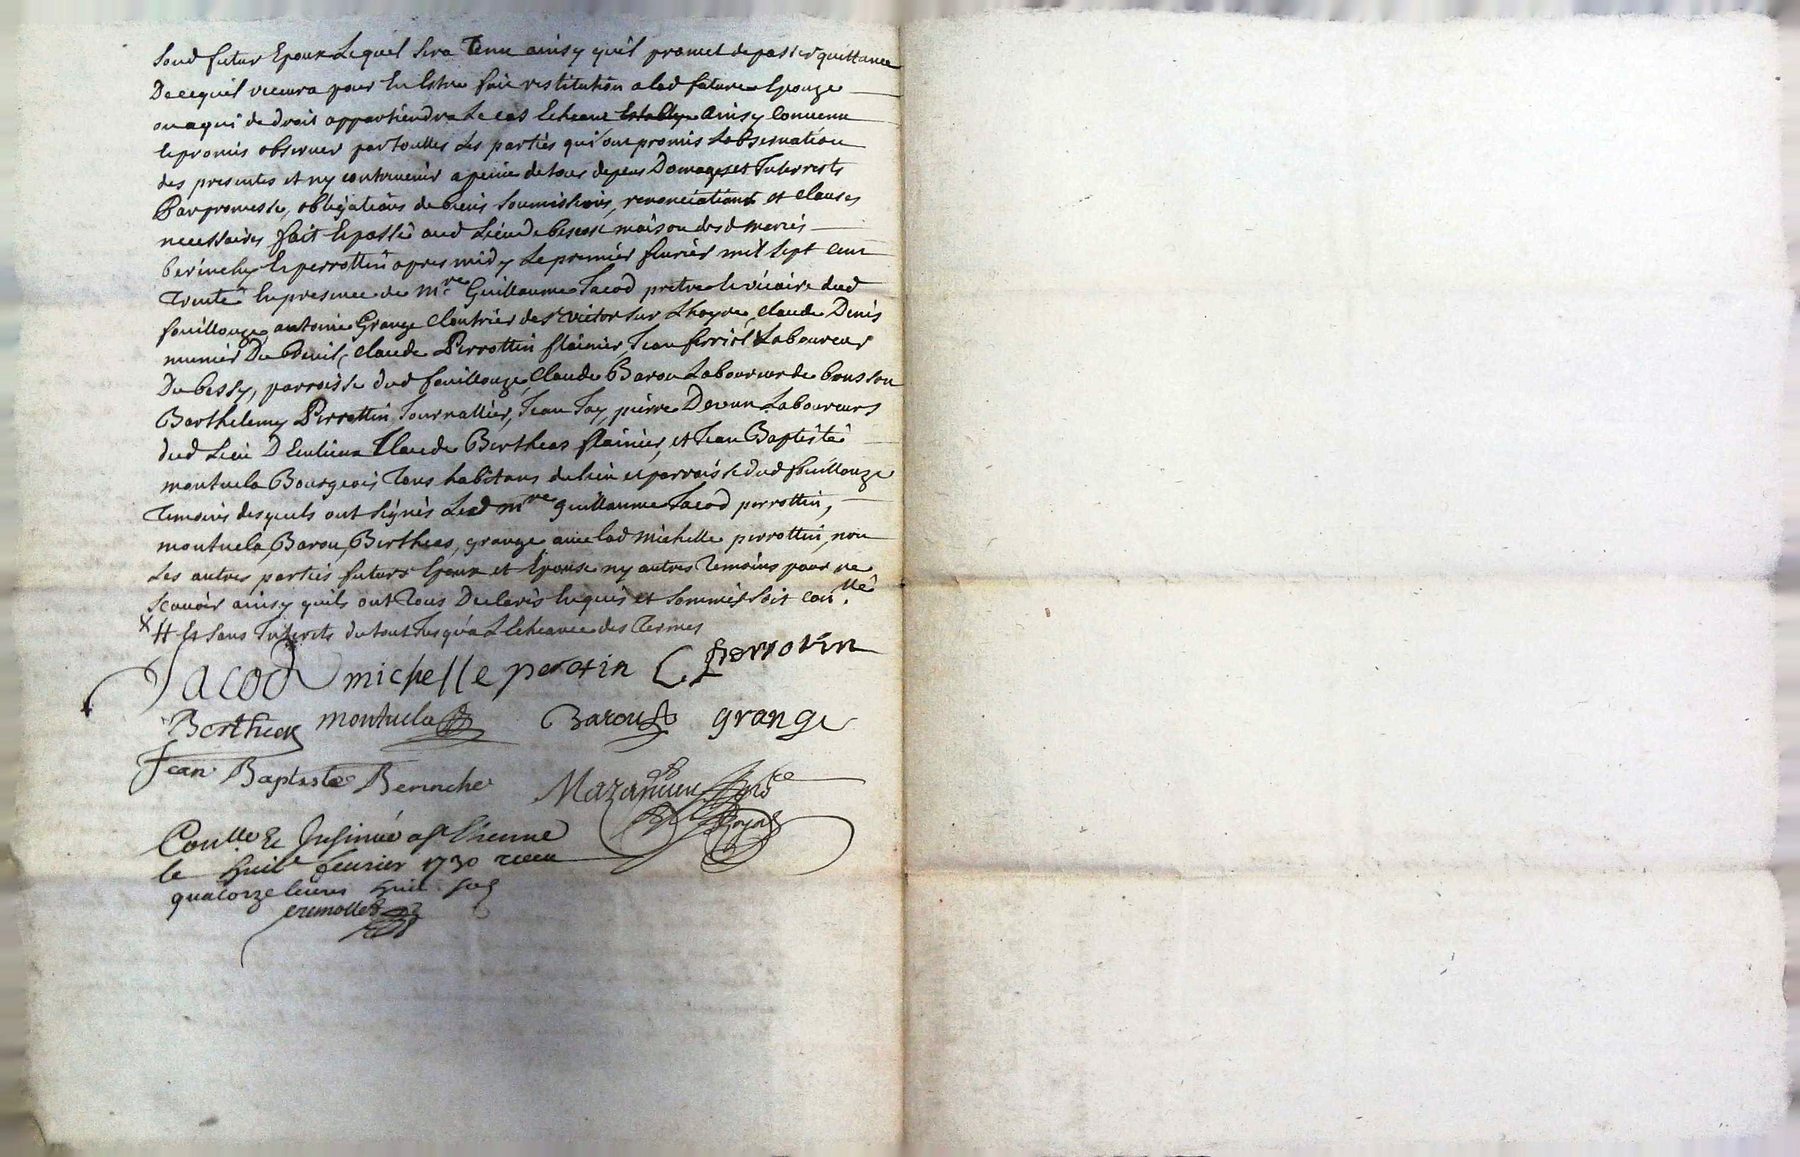 Soud futur Epoux Lequel sera Tenu ainsy quil promet de passer quittance
De ce quil recevra pour En Estre fait restitution a lad future Epouze
ou a qui de droit appartiendra Le cas Echeant ainsy Convenu
Et promis observer par touttes Les parties qui ont promis Lobservation
des presentes et ny contrevenir a peine de tous depens Domages et Interrests
Par promesse, obligations de biens soumissions, renonciations et clauses
necessaires fait Et passé aud Lieu de maison desd mariés
berinchy Et perrottin apres midy Le premier fevrier mil sept cent
trente En presence de mre Guillaume Jacod pretre et vicaire dud
fouillouze, antoine Grange Cloutrier de st victor sur Lhoyre, claude Denis
munier Du claude Perrottin flainier, Jean ferriol Laboureur
Du bessy, parroisse dud fouillouze, Claude Barou Laboureur de
Barthelemy Perrottin Journallier, Jean Fay, pierre Devun Laboureurs
dud Lieu Claude Bertheas flainier, et Jean Baptiste
montuela Bourgeois Tous habitans du lieu et parroisse dud fouillouze
Temoins desquels ont signés Led mre guillaume Jacod perrottin,
montuela, Barou, Bertheas, grange avec lad michelle perrottin, non
Les autres parties futurs Epoux et Epouse ny autres Temoins pour ne
scavoir ainsy quils ont Tous Declarés Enquis et sommés soit conllé
X # Et sans Interests du tout Jusqua L Echeance des Termes
Jacod michelle perotin C perrotin
Bertheas montuela Barou grange
Jean Baptiste Berinche
Royal
Conllé & Insinué a St Etienne
le huit fevrier 1730 receu
quatorze livres huit sols